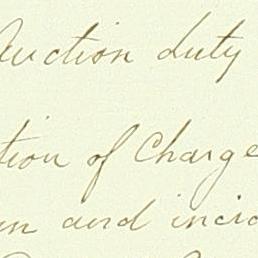 Auction duty
tion of Charge
and incid